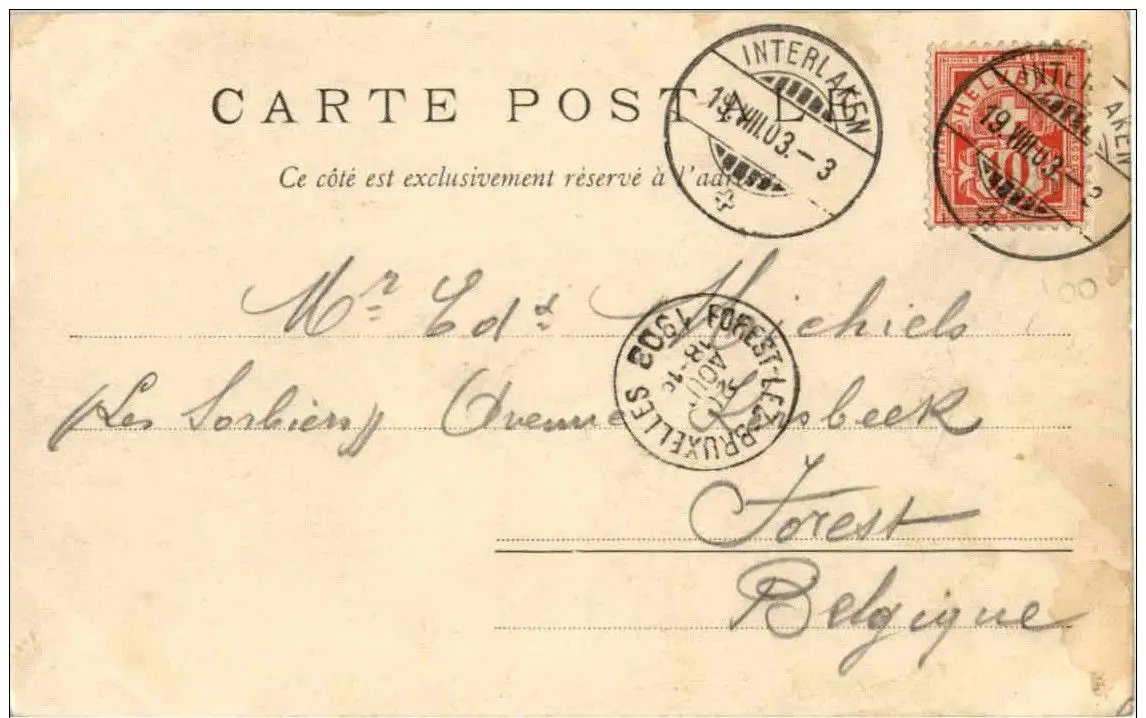 CARTE POSTALE
Ce côté est exclusivement réservé à l'adresse
INTERLAKEN
19.VIII.03.–3
HELVETIA
10
INTERLAKEN
19.VIII.03.–3
Mr Edd Michiels
FOREST-LEZ-BRUXELLES 1903
AOUT
(Les Sorbiers) Avenue Kersbeek
Forest
Belgique